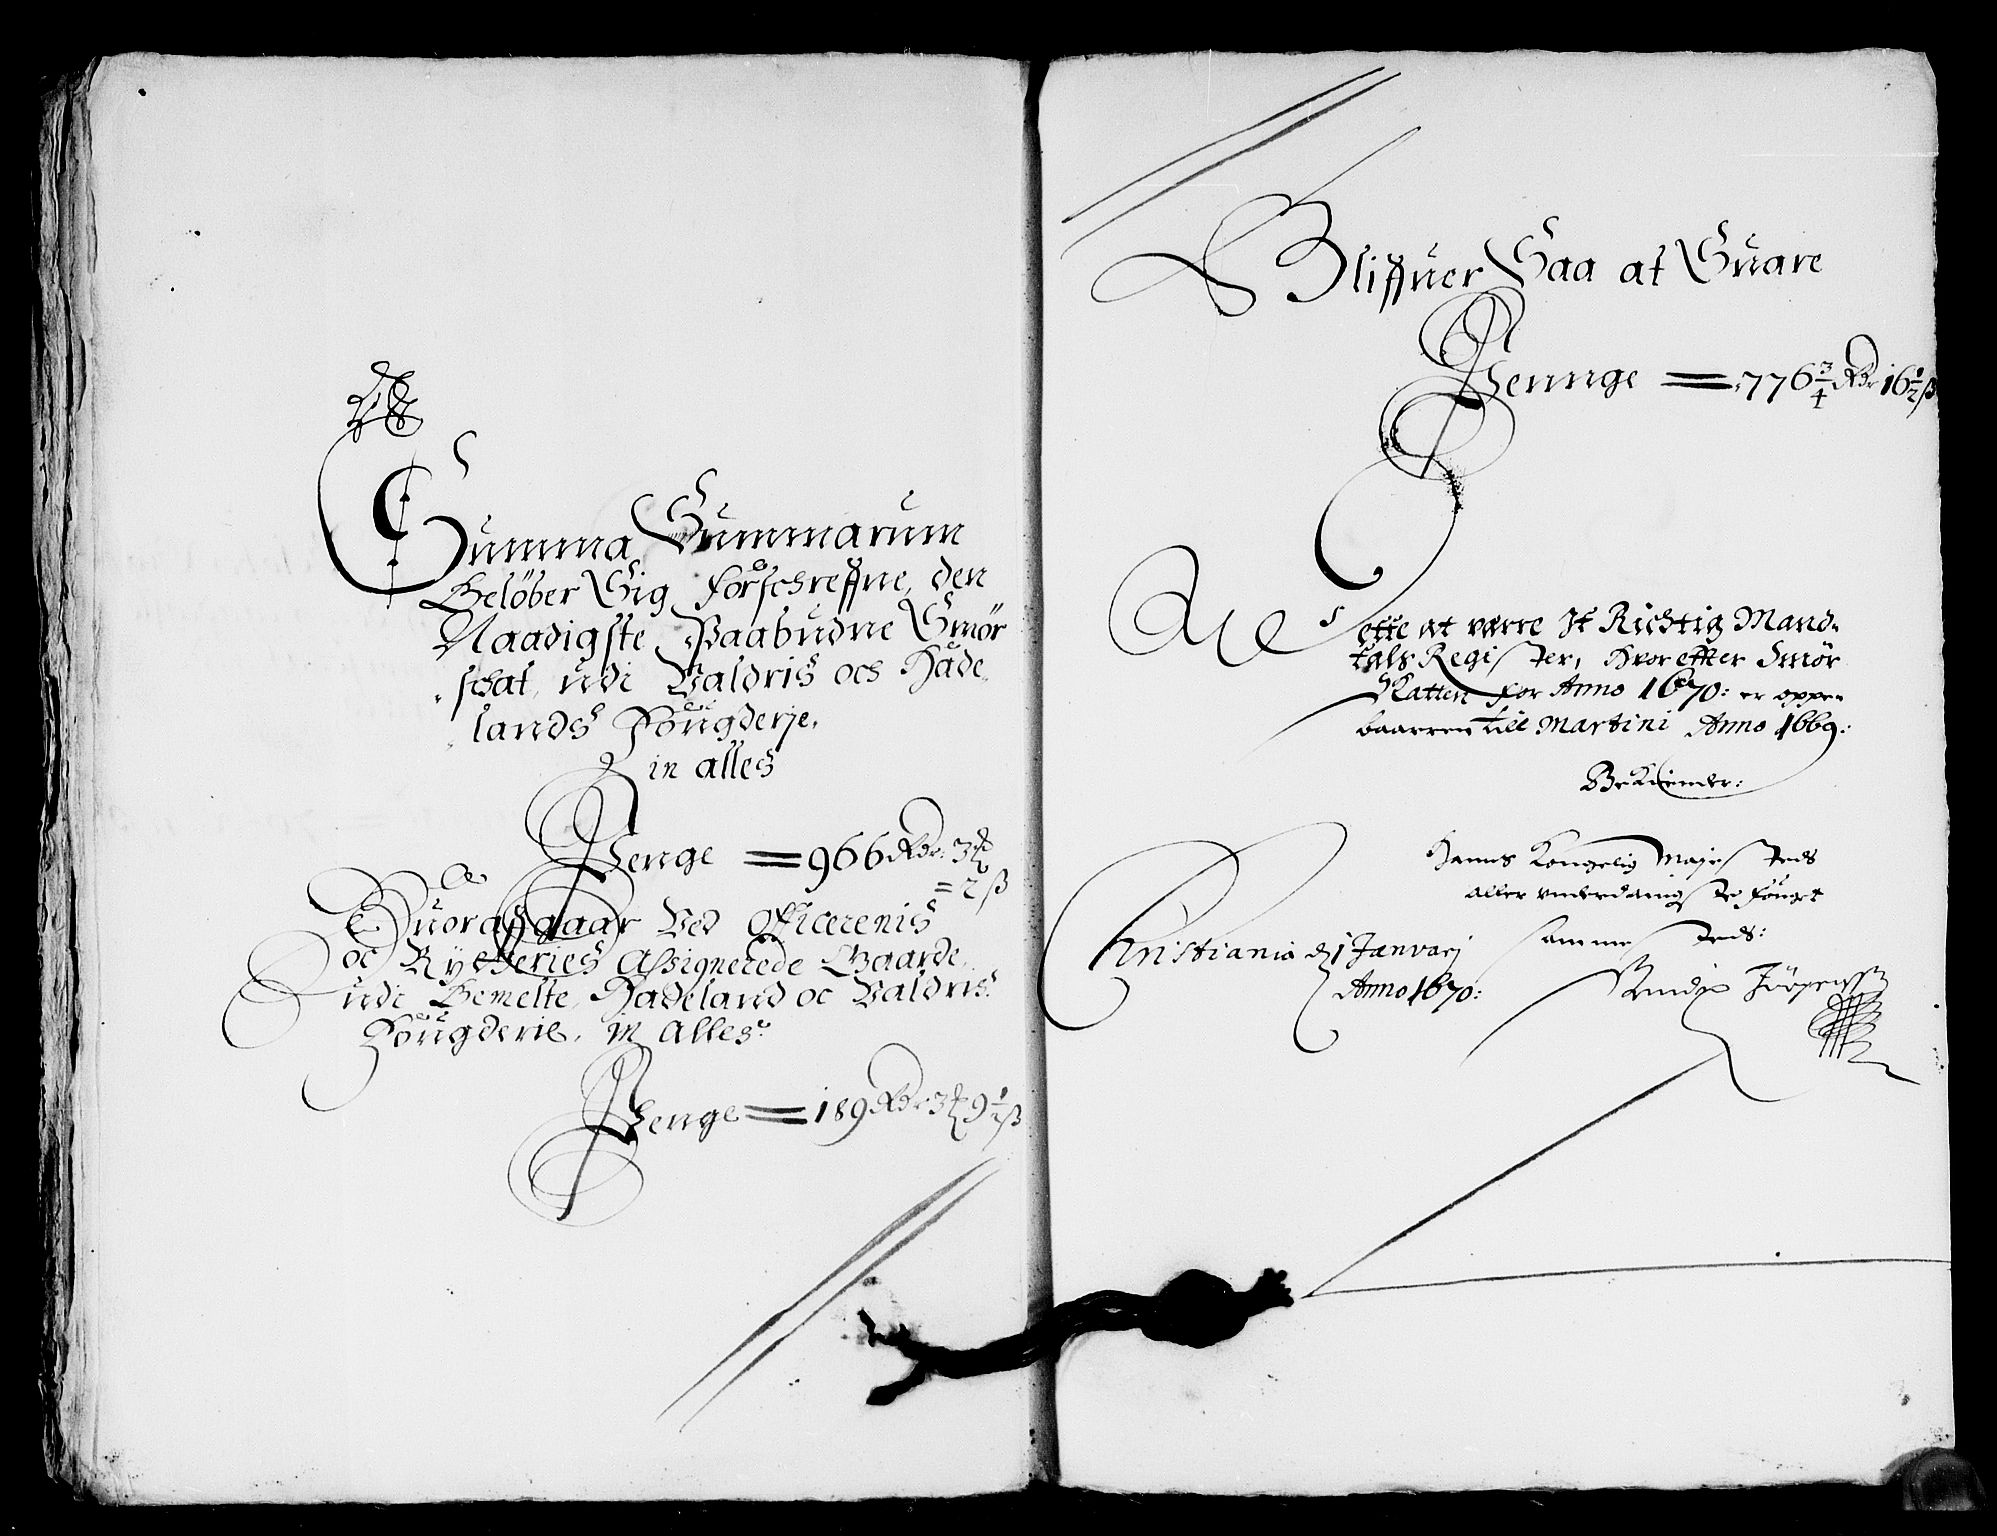 Summa Summarum
Beløber Sig forschreffne, den
Naadigste Paabudne Smør
schat, udi Valdris och Hade
lands Fougderje,
in alles
Penge = 966 Rdr: 3
= 2 ß
Huoraf gaar Ved Officerenis
oc Rytteries Assignerede Gaarde,
udi Bemelte, Hadeland oc Valdris
Fougderie, in Alles
Penge = 189 Rdr 3 9 1/2 ß
Bliffuer Saa at Suare
Penge = 776 3/4 Rdr 16 1/2 ß
Dette at være It Richtig Mand-
tals Register, Hvor effter Smør
Skatten for Anno 1670: er oppe-
baarren till Martini Anno 1669:
Bekiender:
Hanns Kongelig Majesteds
aller underdanigste fouget
sammesteds:
Christiania d 1 Janvarj
Anno 1670:
Jørgenss